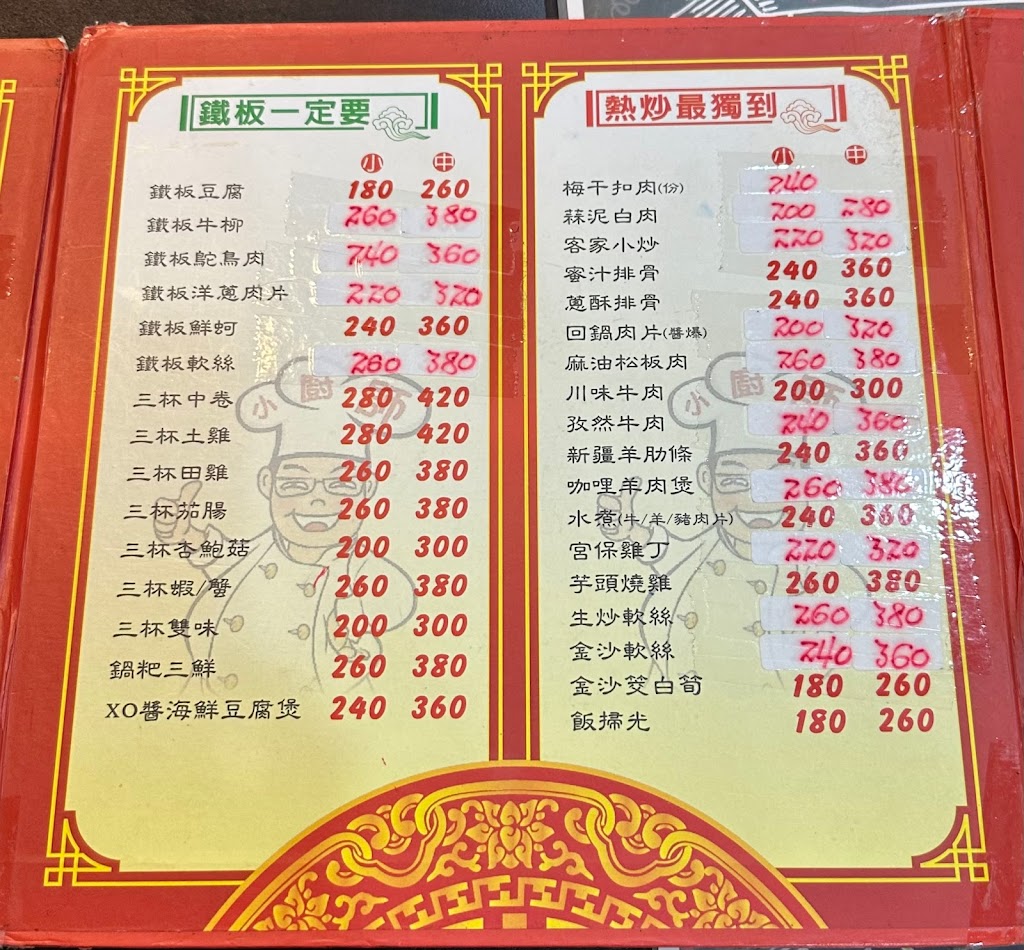 鐵板一定要
小 中
鐵板豆腐 180 260
鐵板牛柳 260 380
鐵板鴕鳥肉 240 360
鐵板洋蔥肉片 220 320
鐵板鮮蚵 240 360
鐵板軟絲 260 380
三杯中卷 280 420
三杯土雞 280 420
三杯田雞 260 380
三杯茄腸 260 380
三杯杏鮑菇 200 300
三杯蝦/蟹 260 380
三杯雙味 200 300
鍋粑三鮮 260 380
XO醬海鮮豆腐煲 240 360
小廚師
熱炒最獨到
小 中
梅干扣肉(份) 240
蒜泥白肉 200 280
客家小炒 220 320
蜜汁排骨 240 360
蔥酥排骨 240 360
回鍋肉片(醬爆) 200 320
麻油松板肉 260 380
川味牛肉 200 300
孜然牛肉 240 360
新疆羊肋條 240 360
咖哩羊肉煲 260 380
水煮(牛/羊/豬肉片) 240 360
宮保雞丁 220 320
芋頭燒雞 260 380
生炒軟絲 260 380
金沙軟絲 240 360
金沙筊白筍 180 260
飯掃光 180 260
小廚師